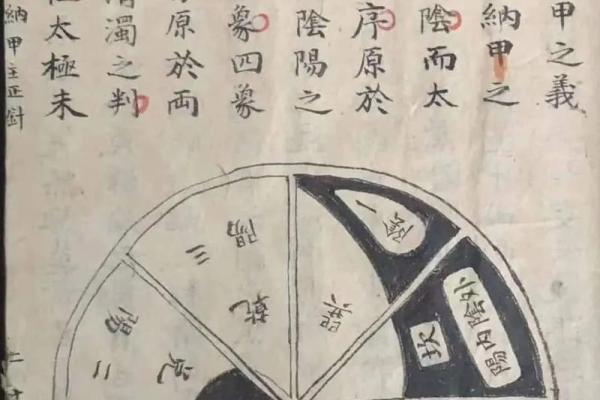 甲之義
納甲之
陰而太
序原於
陰陽之
象四象
原於両
濁之判
太極未
納甲主正針
陰一
巽
外陰内陽
坎
陽三
乾
陽二
兌